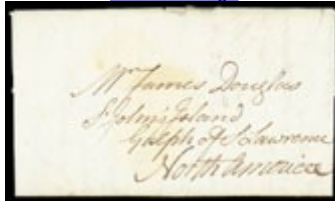 Mr James Douglas
St Johns Island
Golph of St Lawrence
North America